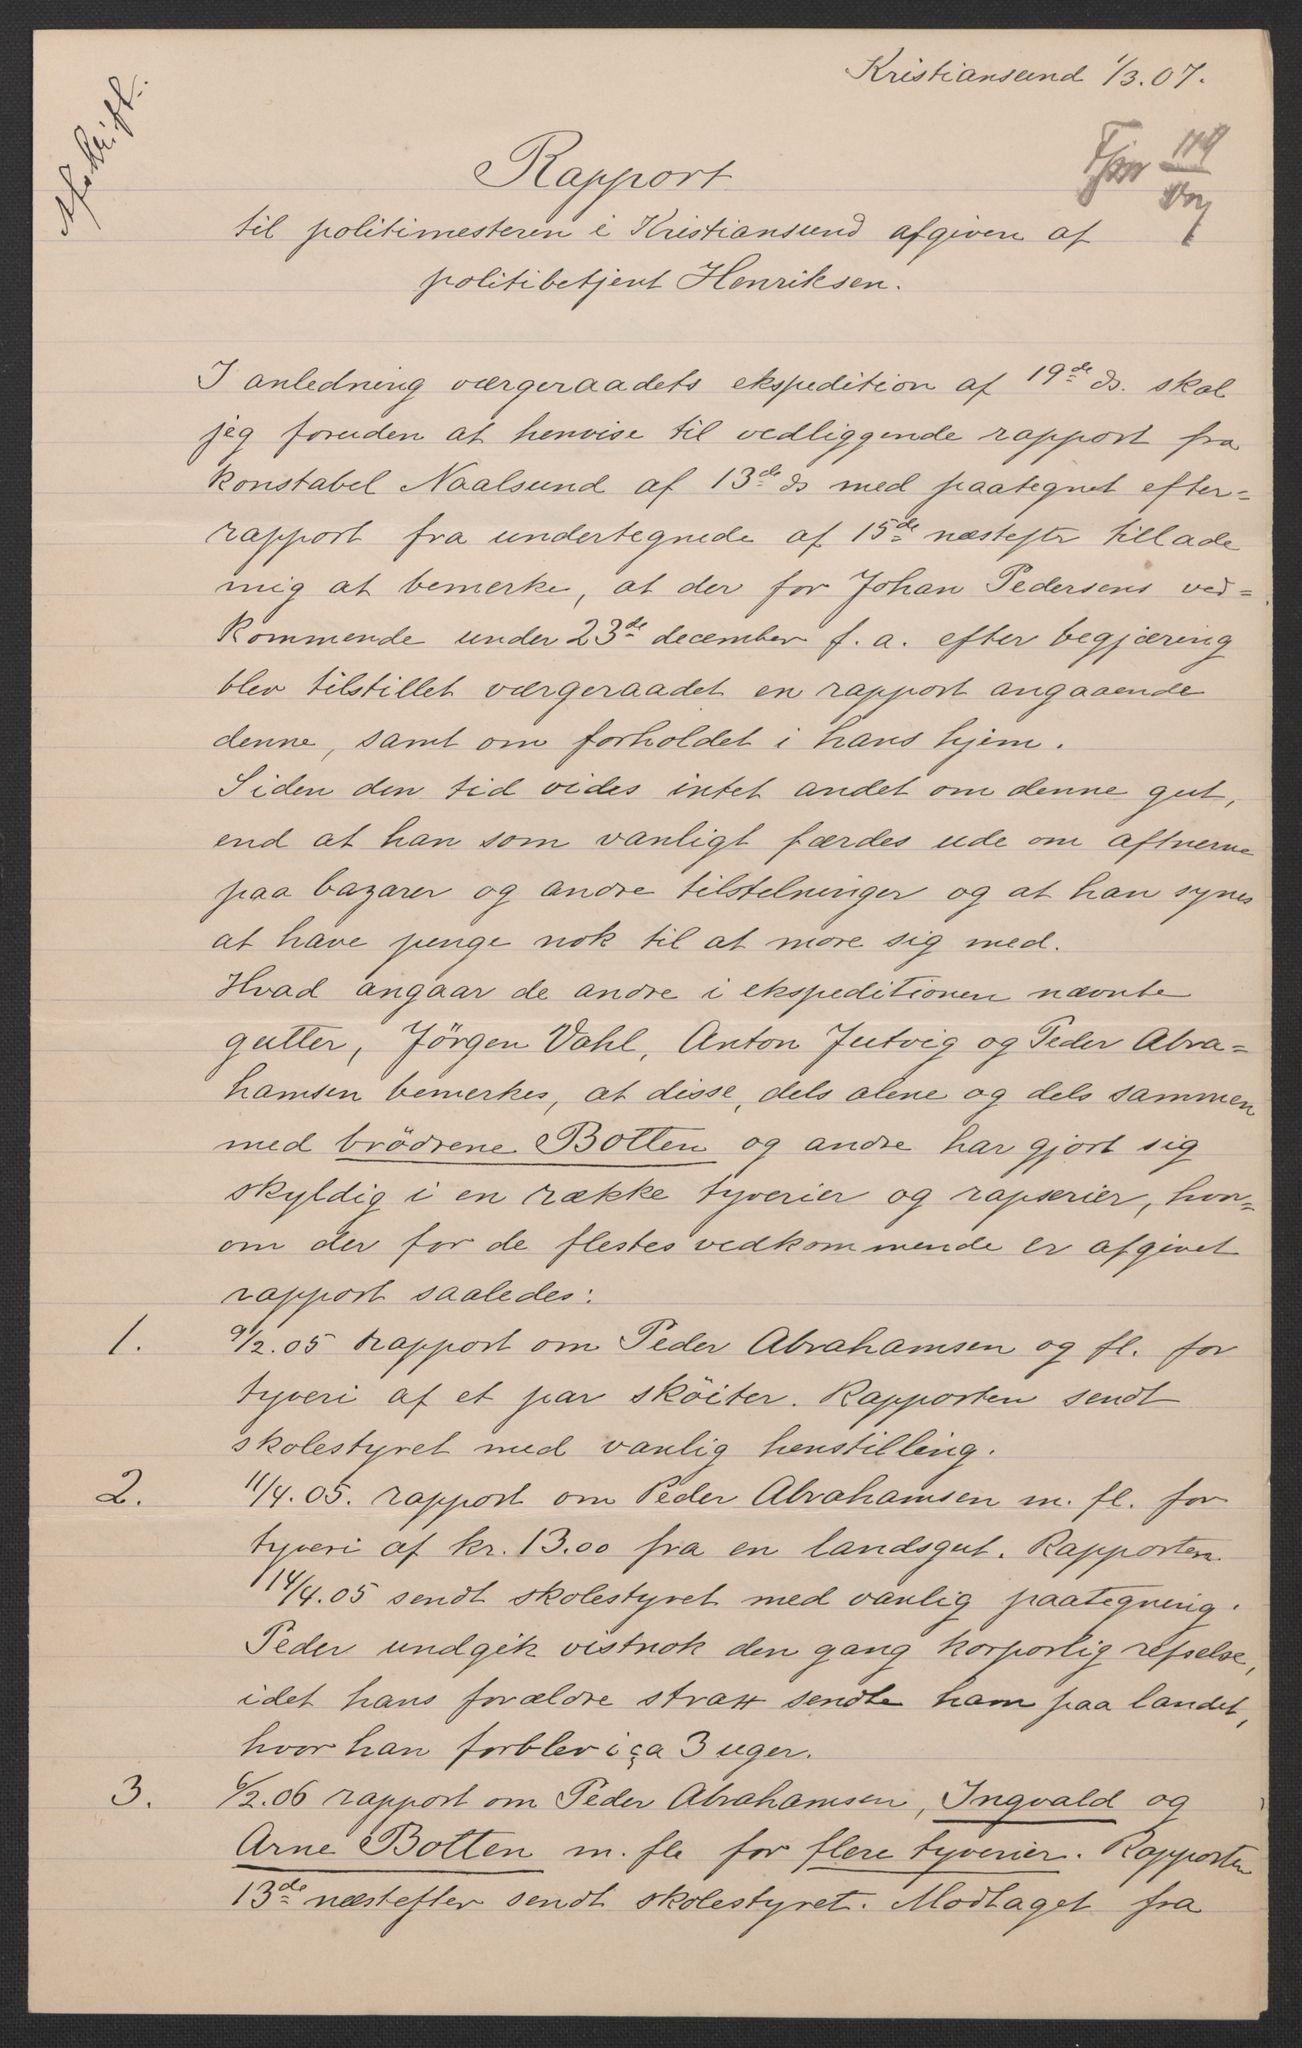 Afskrift.
Kristiansund 1/3.07.
Rapport
til politimesteren i Kristiansund afgiven af
politibetjent Henriksen.
I anledning værgeraadets ekspedition af 19de ds. skal
jeg foruden at henvise til vedliggende rapport fra
konstabel Naalsund af 13de ds med paategnet efter=
rapport fra undertegnede af 15de næstefter tillade
mig at bemerke, at der for Johan Pedersens ved=
kommende under 23de december f. a. efter begjæring
blev tilstillet værgeraadet en rapport angaaende
denne, samt om forholdet i hans hjem.
Siden den tid vides intet andet om denne gut,
end at han som vanligt færdes ude om aftnerne
paa bazarer og andre tilstelninger og at han synes
at have penge nok til at more sig med.
Hvad angaar de andre i ekspeditionen nævnte
gutter, Jörgen Vahl, Anton Jutvig og Peder Abra=
hamsen bemerkes, at disse, dels alene og dels sammen
med brödrene Botten og andre har gjort sig
skyldig i en række tyverier og rapserier, hvor=
om der for de flestes vedkommende er afgivet
rapport saaledes:
1. 9/2.05 rapport om Peder Abrahamsen og fl. for
tyveri af et par sköiter. Rapporten sendt
skolestyret med vanlig henstilling.
2. 11/4.05. rapport om Peder Abrahamsen m. fl. for
tyveri af kr. 13.00 fra en landsgut. Rapporten
14/4.05 sendt skolestyret med vanlig paategning.
Peder undgik vistnok den gang korporlig refselse,
idet hans forældre strax sendte ham paa landet,
hvor han forblev i ca 3 uger.
3. 6/2.06 rapport om Peder Abrahamsen, Ingvald og
Arne Botten m. fle for flere tyverier. Rapporten
13de næstefter sendt skolestyret. Modtaget fra